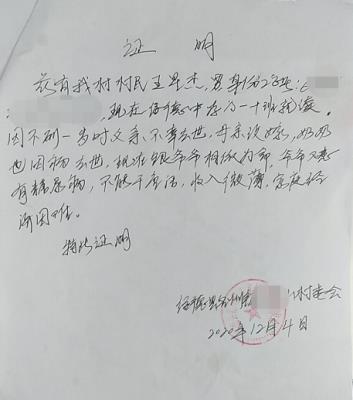 证 明
兹有我村村民王星杰,男身份证号:6
,现在绥德中学高一十班就读,
因不到一岁时父亲不幸去世,母亲改嫁,奶奶
也因病去世,现在跟爷爷相依为命,爷爷又患
有糖尿病,不能干重活,收入微薄,家庭经
济困难。
特此证明
绥德县 村委会
2020年12月4日